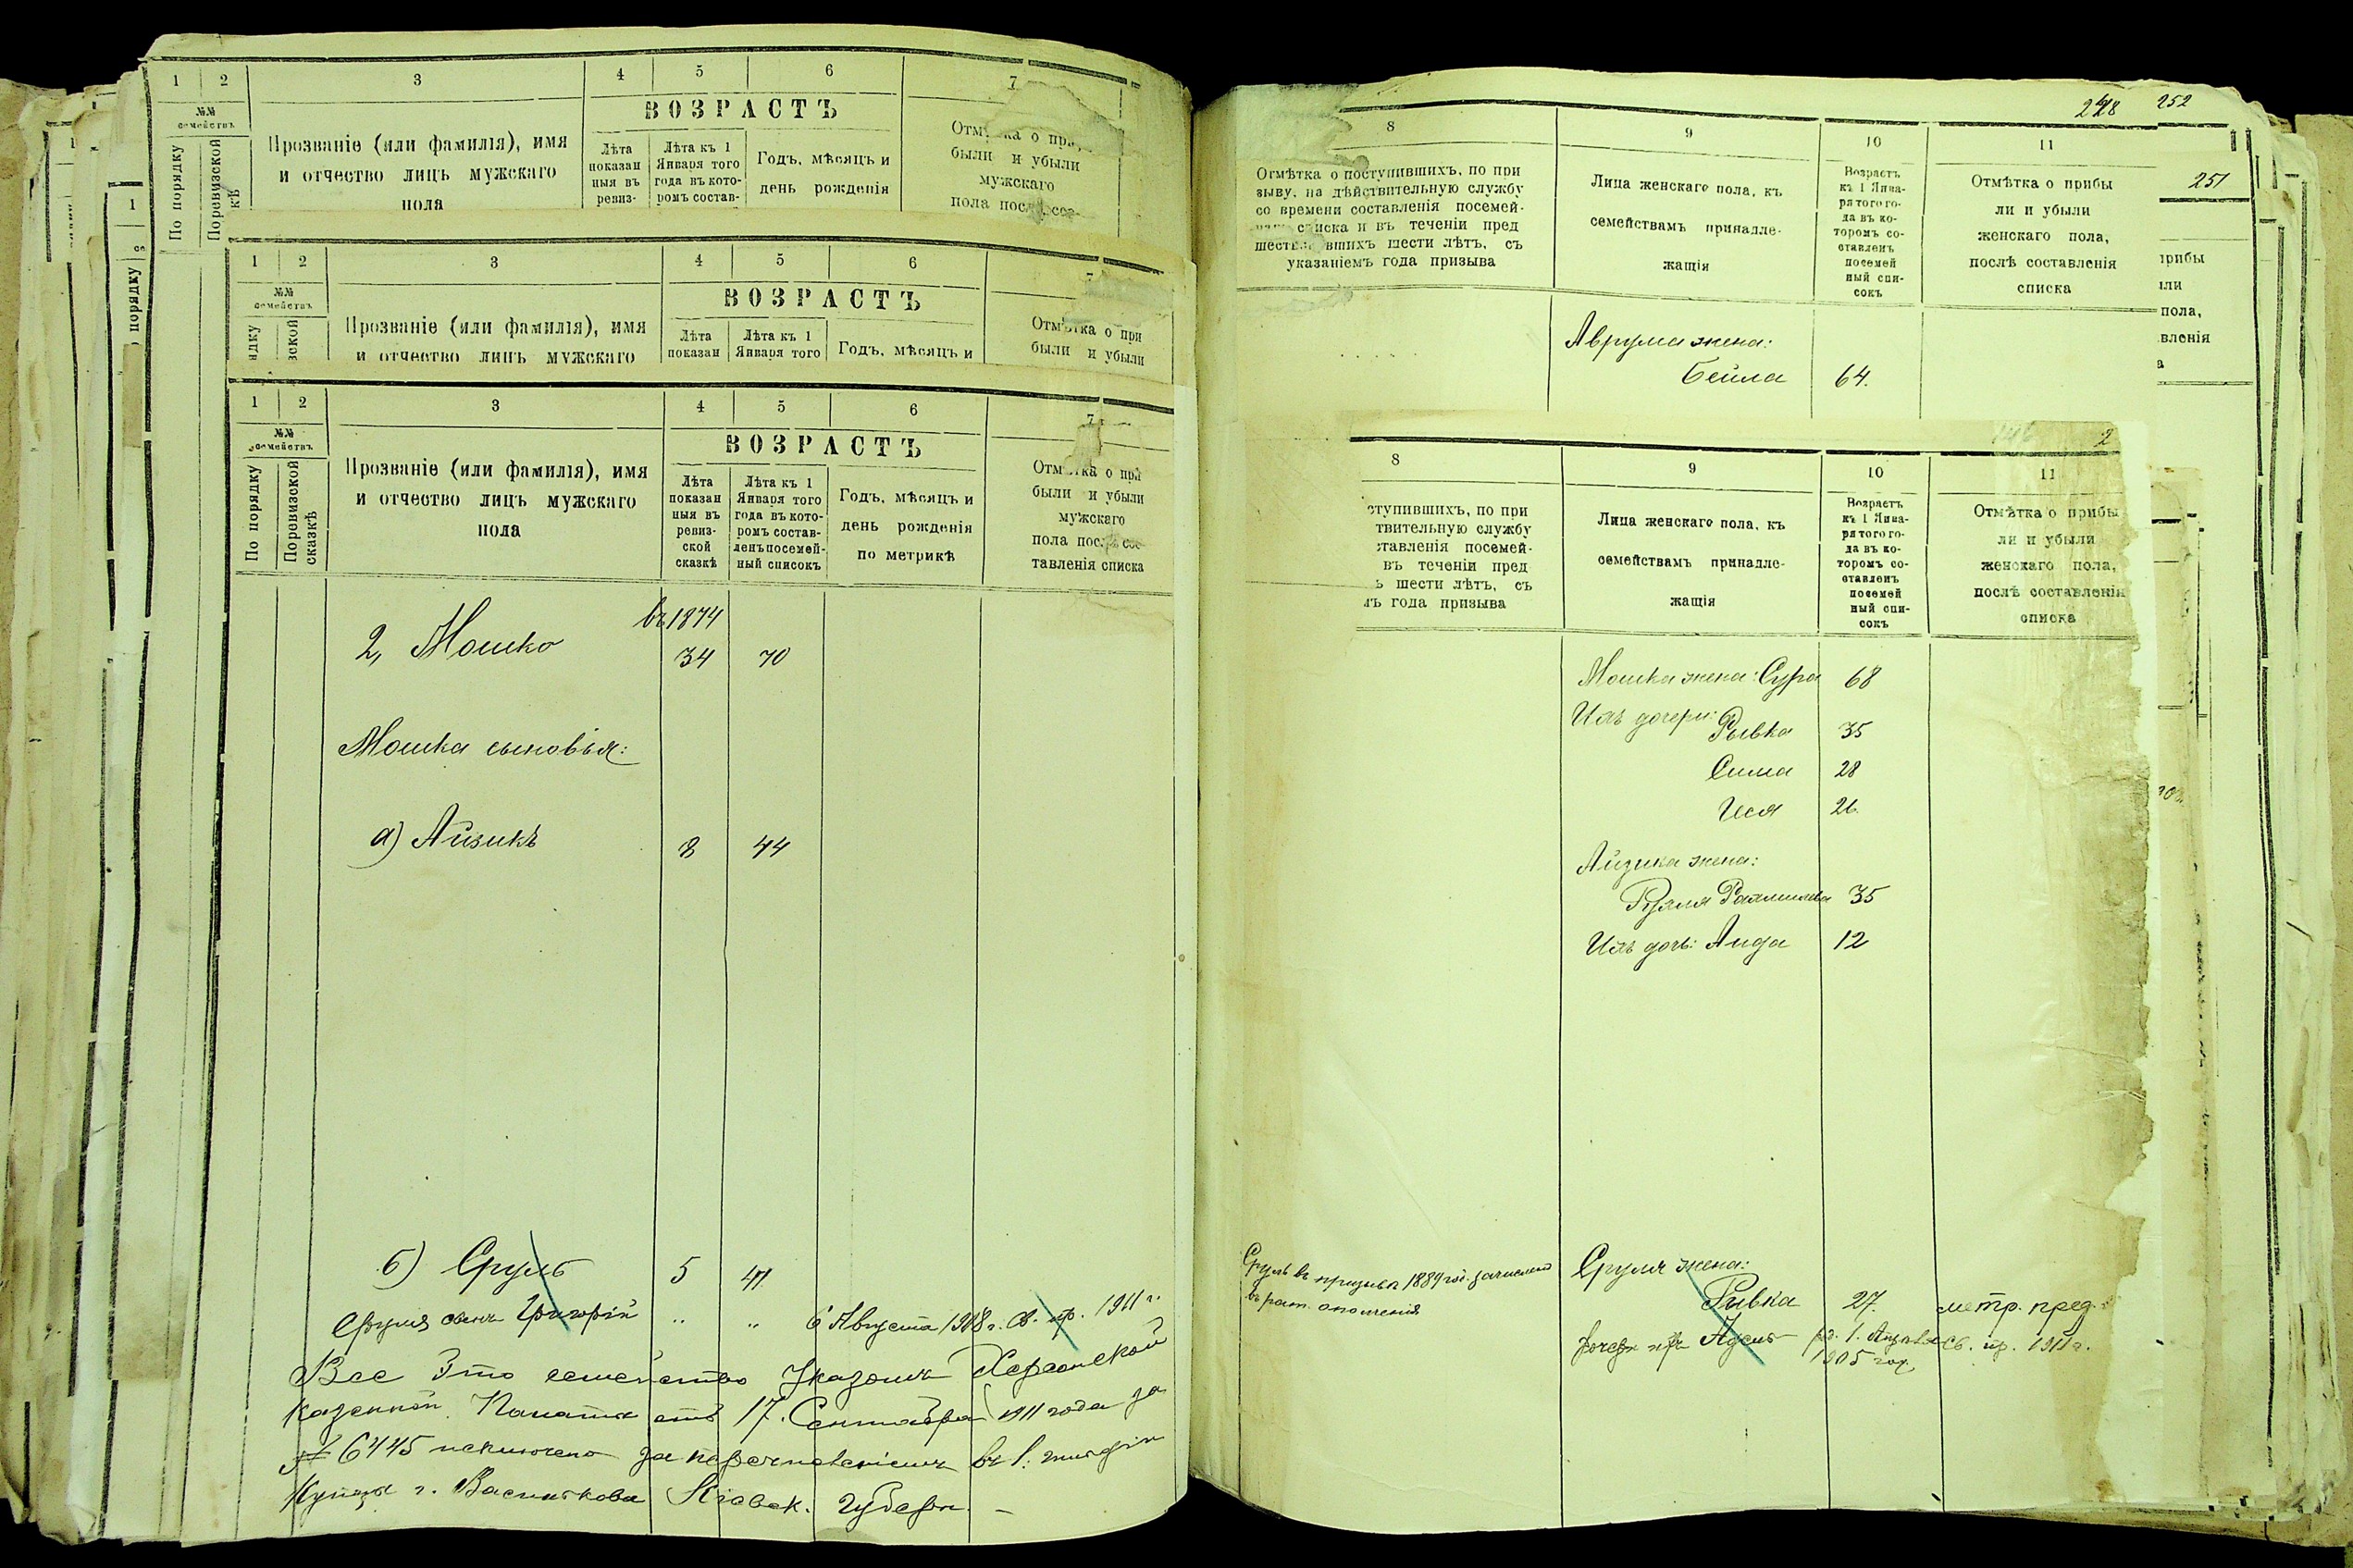 1 2 3 4 5 6 7
№№ семействъ
По порядку
Поревизской
кѣ
Прозваніе (или фамилія), имя
и отчество лицъ мужскаго
пола
ВОЗРАСТЪ
Лѣта
показан
ныя въ
ревиз-
Лѣта къ 1
Января того
года въ кото-
ромъ состав-
Годъ, мѣсяцъ и
день рожденія
были и убыли
мужскаго
1 2 3 4 5 6
№№ семействъ
Прозваніе (или фамилія), имя
и отчество лицъ мужскаго
ВОЗРАСТЪ
Лѣта
показан
Лѣта къ 1
Января того
Годъ, мѣсяцъ и
Отмѣтка о при
были и убыли
1 2 3 4 5 6 7
№№ семействъ
По порядку
Поревизской
сказкѣ
Прозваніе (или фамилія), имя
и отчество лицъ мужскаго
пола
ВОЗРАСТЪ
Лѣта
показан
ныя въ
ревиз-
ской
сказкѣ
Лѣта къ 1
Января того
года въ кото-
ромъ состав-
ленъ посемей-
ный списокъ
Годъ, мѣсяцъ и
день рожденія
по метрикѣ
Отмѣтка о при
были и убыли
мужскаго
пола послѣ сос-
тавленія списка
въ 1874
2, Мошко 34 70
Мошка сыновья:
а) Айзикъ 8 44
б) Сруль 5 41
Сруля сынъ Григорій " " 6 Августа 1908 г. Св. пр. 1911 г.
Все это семейство Указомъ Херсонской
Казенной Палаты отъ 17. Сентября 1911 года за
№ 6445 исключено за перечисленіемъ въ 1. гильдіи
Купцы г. Василькова Кіевск. губерн. –
248 252
251
8 9 10 11
Отмѣтка о поступившихъ, по при
зыву, на дѣйствительную службу
со времени составленія посемей-
списка и въ теченіи пред
шествовавшихъ шести лѣтъ, съ
указаніемъ года призыва
Лица женскаго пола, къ
семействамъ принадле-
жащія
Возрастъ
къ 1 Янва-
ря того го-
да въ ко-
торомъ со-
ставленъ
посемей
ный спи-
сокъ
Отмѣтка о прибы
ли и убыли
женскаго пола,
послѣ составленія
списка
прибы
или
пола,
вленія
а
Аврума жена:
Бейла 64.
2
8 9 10 11
ступившихъ, по при
твительную службу
ставленія посемей-
въ теченіи пред
ъ шести лѣтъ, съ
мъ года призыва
Лица женскаго пола, къ
семействамъ принадле-
жащія
Возрастъ
къ 1 Янва-
ря того го-
да въ ко-
торомъ со-
ставленъ
посемей
ный спи-
сокъ
Отмѣтка о прибы
ли и убыли
женскаго пола,
послѣ составленія
списка
Мошка жена: Сура 68
Ихъ дочери: Рывка 35
Сима 28
Ися 26
Айзика жена:
Рузля 35
Ихъ дочь: Аида 12
Сруль въ призывѣ 1889 год. зачисленъ
въ рат. ополченія
Сруля жена:
Рывка 27. метр. пред.
дочь Адель 1905 год. Св. пр. 1911 г.